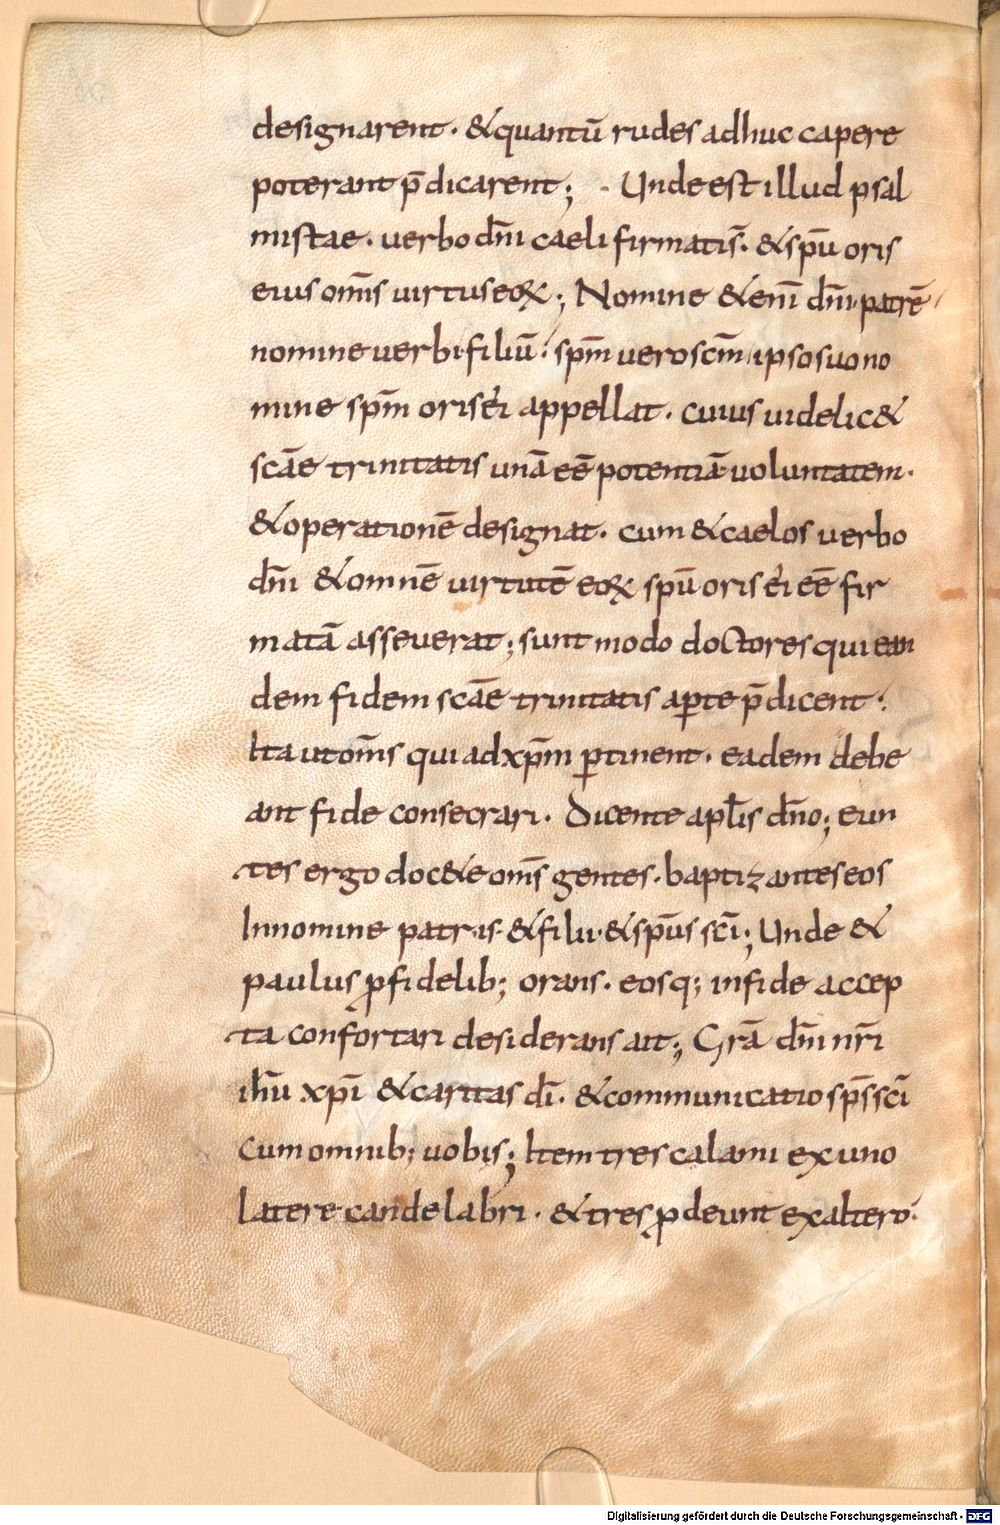 designarent. &quantū rudes adhuc capere
poterant p̄dicarent; . Unde est illud psal
mistae. verbo dn̄i caeli firmatis̄. & spū oris
eius om̄s uirtus eoꝝ; Nomine & enī dn̄i patrē
nomine verbi filiū. sp̄m vero sc̄m ipso suo no
mine sp̄m oris ei appellat. cuius uidelic&
scāe trinitatis unā eē potentiā uoluntatem.
& operationē designat. cum & caelos verbo
dn̄i & omnē uirtutē eoꝝ spū oris ei eē fir
matā asseverat; sunt modo doctores qui ean
dem fidem scāe trinitatis aꝑte p̄dicent.
Ita ut om̄s qui ad xp̄m ꝑtinent. eadem debe
ant fide consecrari. Dicente apl̄is dn̄o; eun
tes ergo doc&e om̄s gentes. baptizantes eos
In nomine patris & filii & sp̄us sc̄i; Unde &
paulus ꝓ fidelib; orans. eosq; in fide accep
ta confortari desiderans ait; Grā dn̄i nr̄i
ih̄u xp̄i & caritas dī. & communicatio sp̄s sc̄i
cum omnib; uobis; Item tres calami ex uno
latere candelabri. & tres ꝓdeunt ex altero.
Digitalisierung gefördert durch die Deutsche Forschungsgemeinschaft - DFG